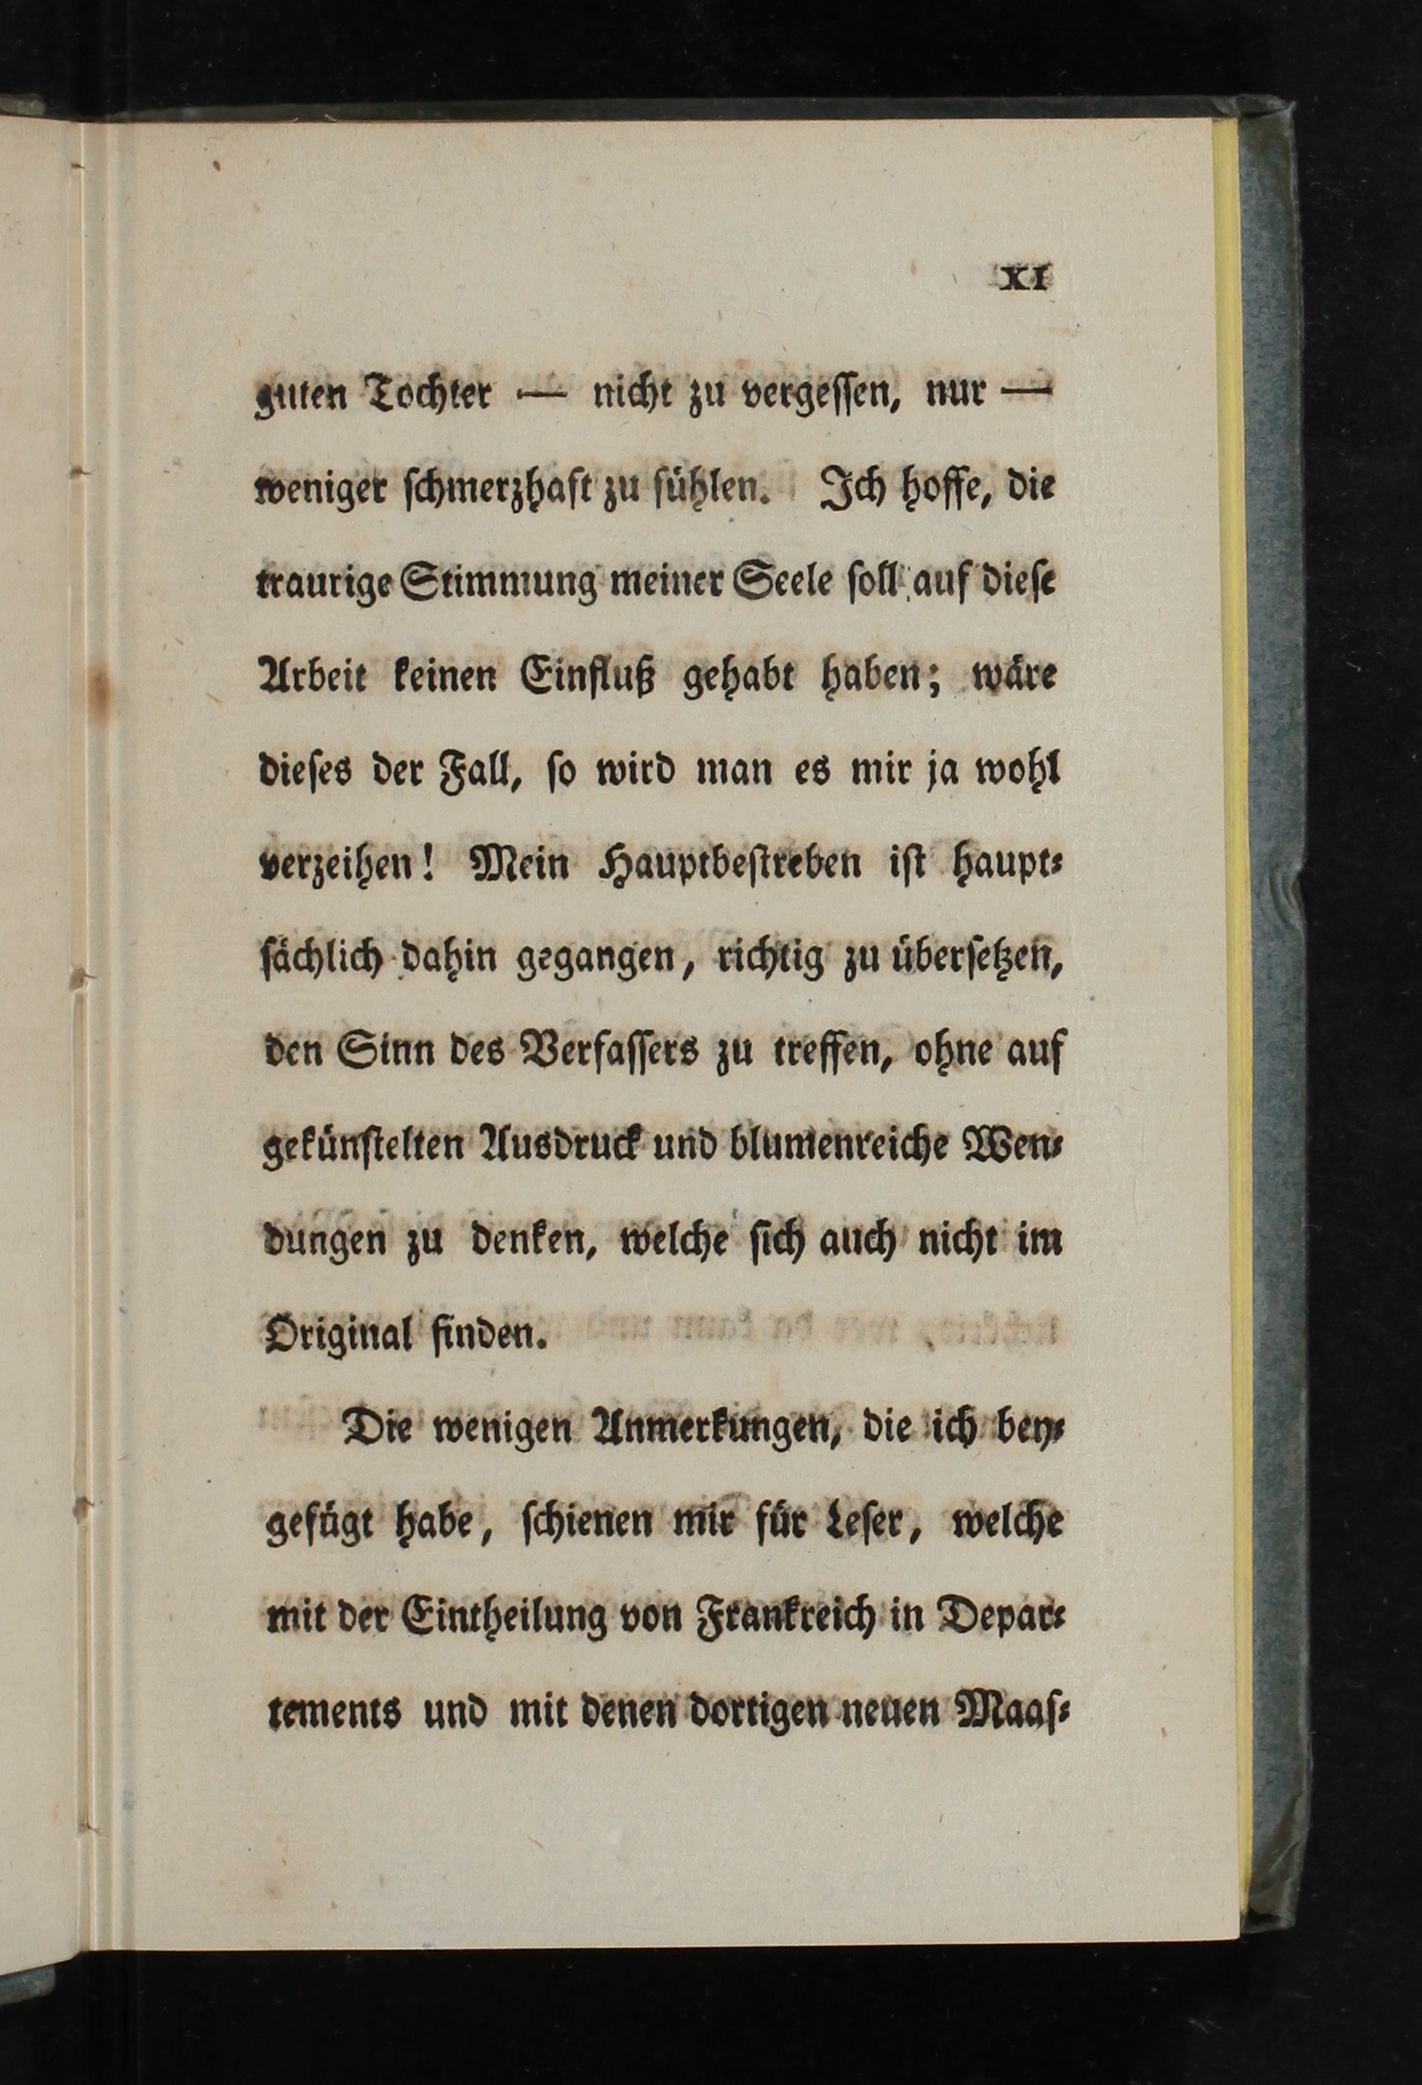 XI
guten Tochter — nicht zu vergeſſen, nur —
weniger ſchmerzhaft zu fühlen. Ich hoffe, die
traurige Stimmung meiner Seele ſoll auf dieſe
Arbeit keinen Einfluß gehabt haben; wäre
dieſes der Fall, ſo wird man es mir ja wohl
verzeihen! Mein Hauptbeſtreben iſt haupt⸗
ſächlich dahin gegangen, richtig zu überſetzen,
den Sinn des Verfaſſers zu treffen, ohne auf
gekünſtelten Ausdruck und blumenreiche Wen⸗
dungen zu denken, welche ſich auch nicht im
Original finden.
Die wenigen Anmerkungen, die ich bey⸗
gefügt habe, ſchienen mir für Leſer, welche
mit der Eintheilung von Frankreich in Depar⸗
tements und mit denen dortigen neuen Maaſ⸗